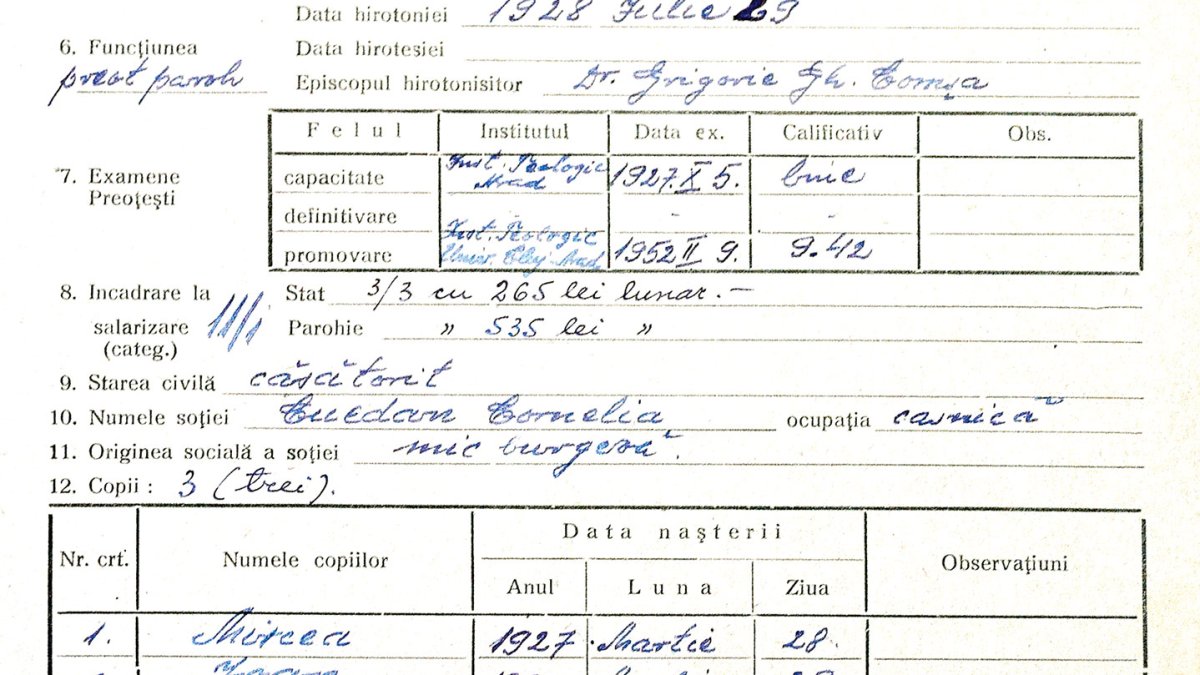 Data hirotoniei 1928 Iulie 29
6. Funcţiunea Data hirotesiei
preot paroh Episcopul hirotonisitor Dr. Grigorie Gh. Comşa
Felul Institutul Data ex. Calificativ Obs.
7. Examene Preoţeşti
capacitate Inst. Teologic Arad 1927.X 5. bine
definitivare - -
promovare Inst. Teologic Univ. Cluj-Arad 1952 II 9. 9.42
8. Incadrare la Stat 3/3 cu 265 lei lunar.—
salarizare III/1 Parohie „ 535 lei „
(categ.)
9. Starea civilă căsătorit
10. Numele soţiei Cornelia ocupaţia casnică
11. Originea socială a soţiei mic burgeză.
12. Copii : 3 (trei).
Nr. crt. Numele copiilor Data naşterii Observaţiuni
Anul Luna Ziua
1. Mircea 1927 Martie 28.